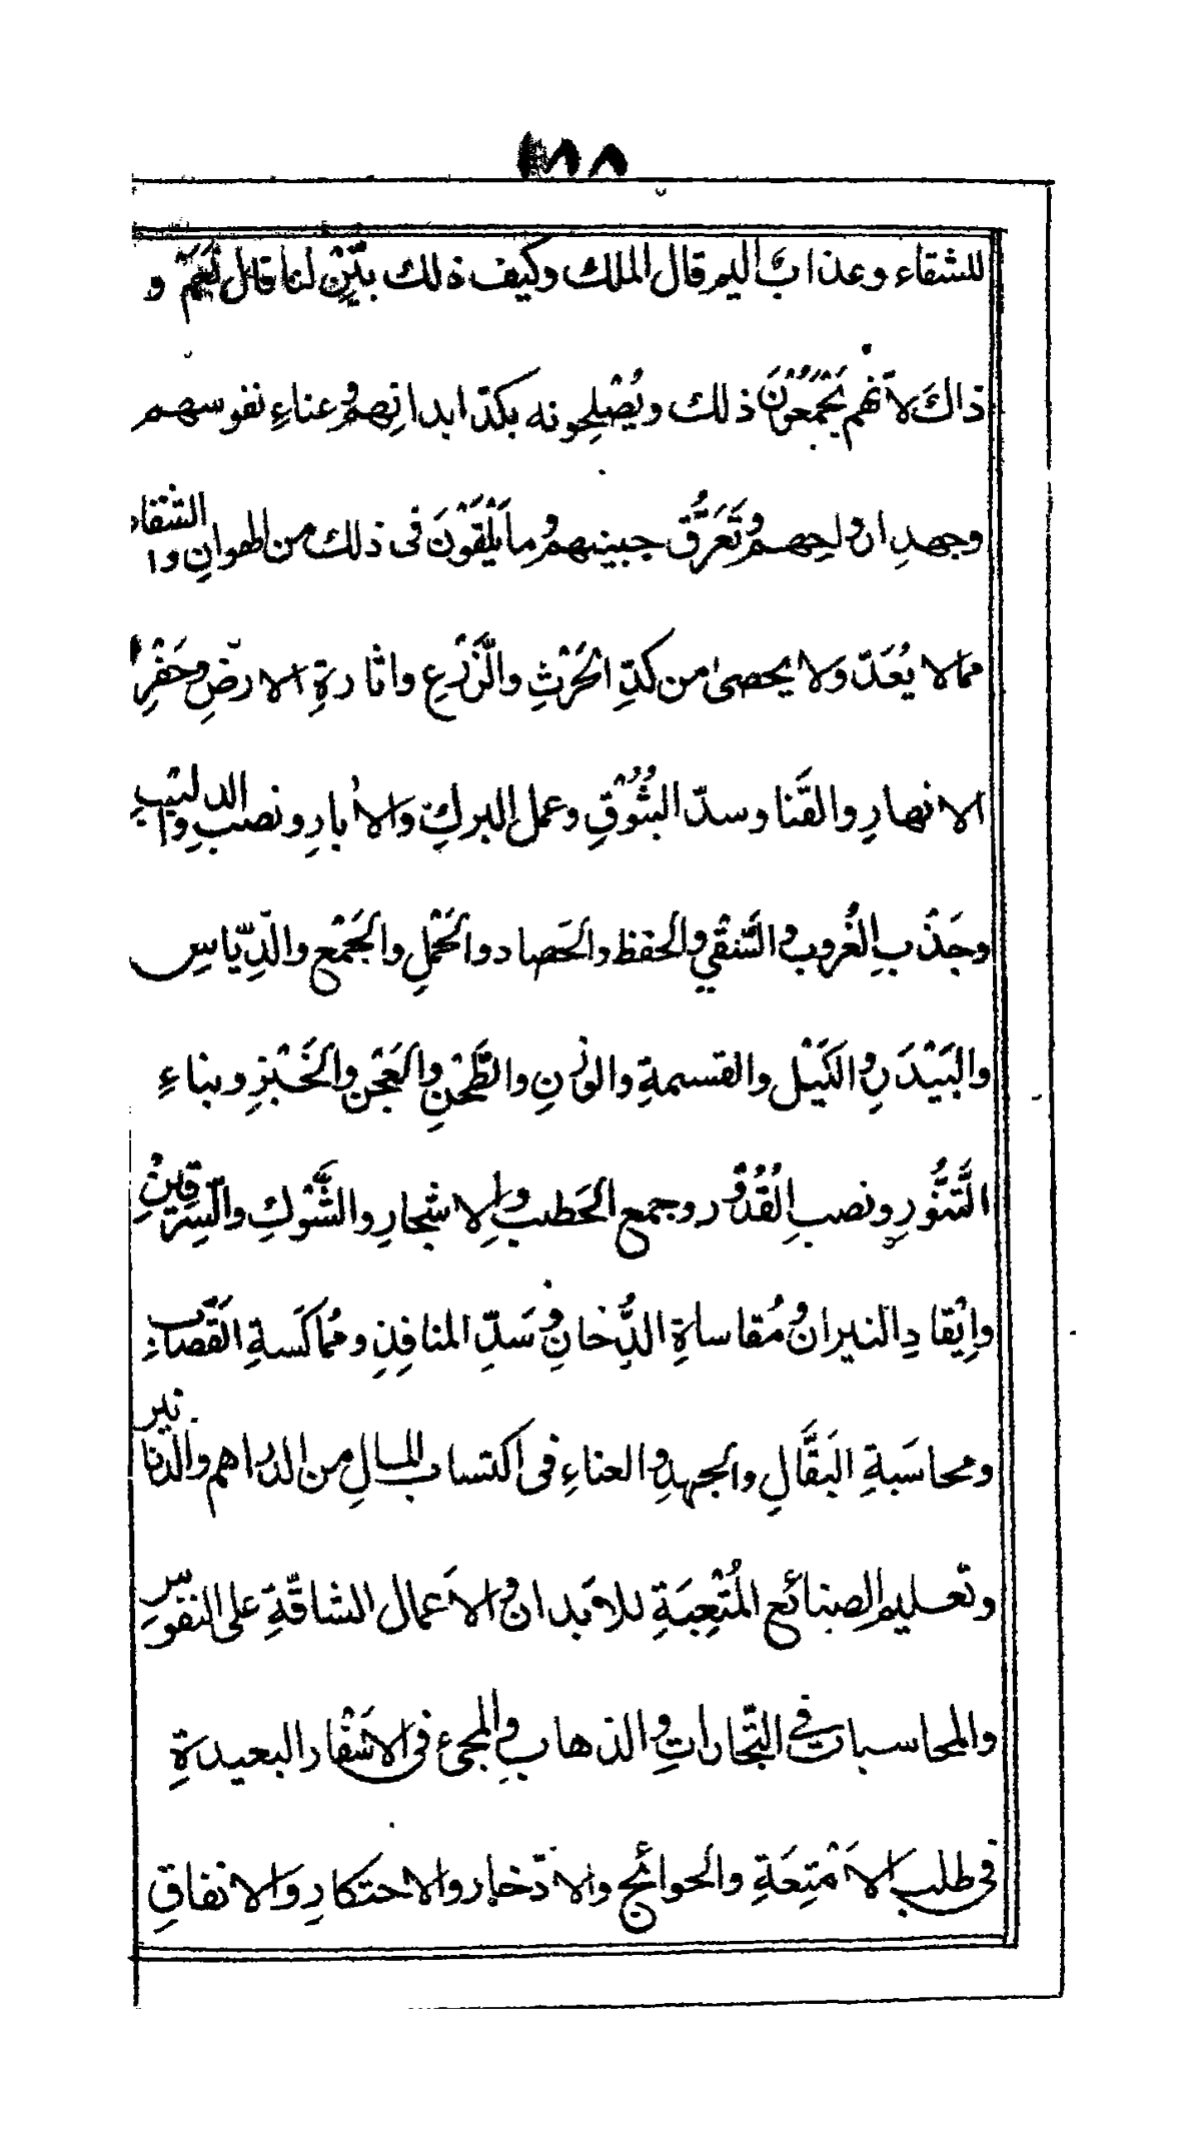 ١٨٨
للشقاء وعذابٌ اليم قال الملك وكيف ذلك بيّنْ لنا قال نَعَمْ و
ذاكَ لأنّهم يَجْمَعُوْنَ ذلك ويُصْلِحونه بكدّ ابدانِهم وعناءِ نفوسهم
وجهدِ ارواحِهم وتَعَرُّق جبينهم وما يَلْقَوْنَ فى ذلك من الهوانِ والشقاء
ممالا يُعَدّ ولا يحصىٰ من كدِّ الحَرْثِ والزَّرْعِ واثارةِ الارضِ وحَفْرِ
الانهارِ والقَنا وسدّ البُثُوْقِ وعمل البركِ والأبارِ ونصب والدواليبِ
وجَذْبِ الغُروب والتَّنقّي والحفظ والحَصاد والحَمْلِ والجَمْعِ والدِّياسِ
والبَيْدَرِ والكَيْل والقسمةِ والوزنِ والطَّحْنِ والعَجْنِ والخَبْزِ وبناءِ
التَّنُّورِ ونصبِ القُدُوْر وجمع الحَطبِ والاشجارِ والشَّوْكِ والسِّرقِيْنِ
واِيْقادِ النيران ومُقاساةِ الدُّخانِ وسَدِّ المنافِذِ ومُماكَسةِ القَصّابِ
ومحاسَبةِ البَقَّالِ والجهدِ والعناءِ فى اكتساب المالِ من الدراهم والدنانير
وتعليم الصنائع المُتْعِبَةِ للابدان والاَعمال الشاقّةِ على النفوسِ
والمحاسبات في التّجاراتِ والذهابِ والمجىء فى الاسْفار البعيدةِ
فى طلب الاَمْتِعَةِ والحوائج والادّخار والاحتكارِ والانفاقِ